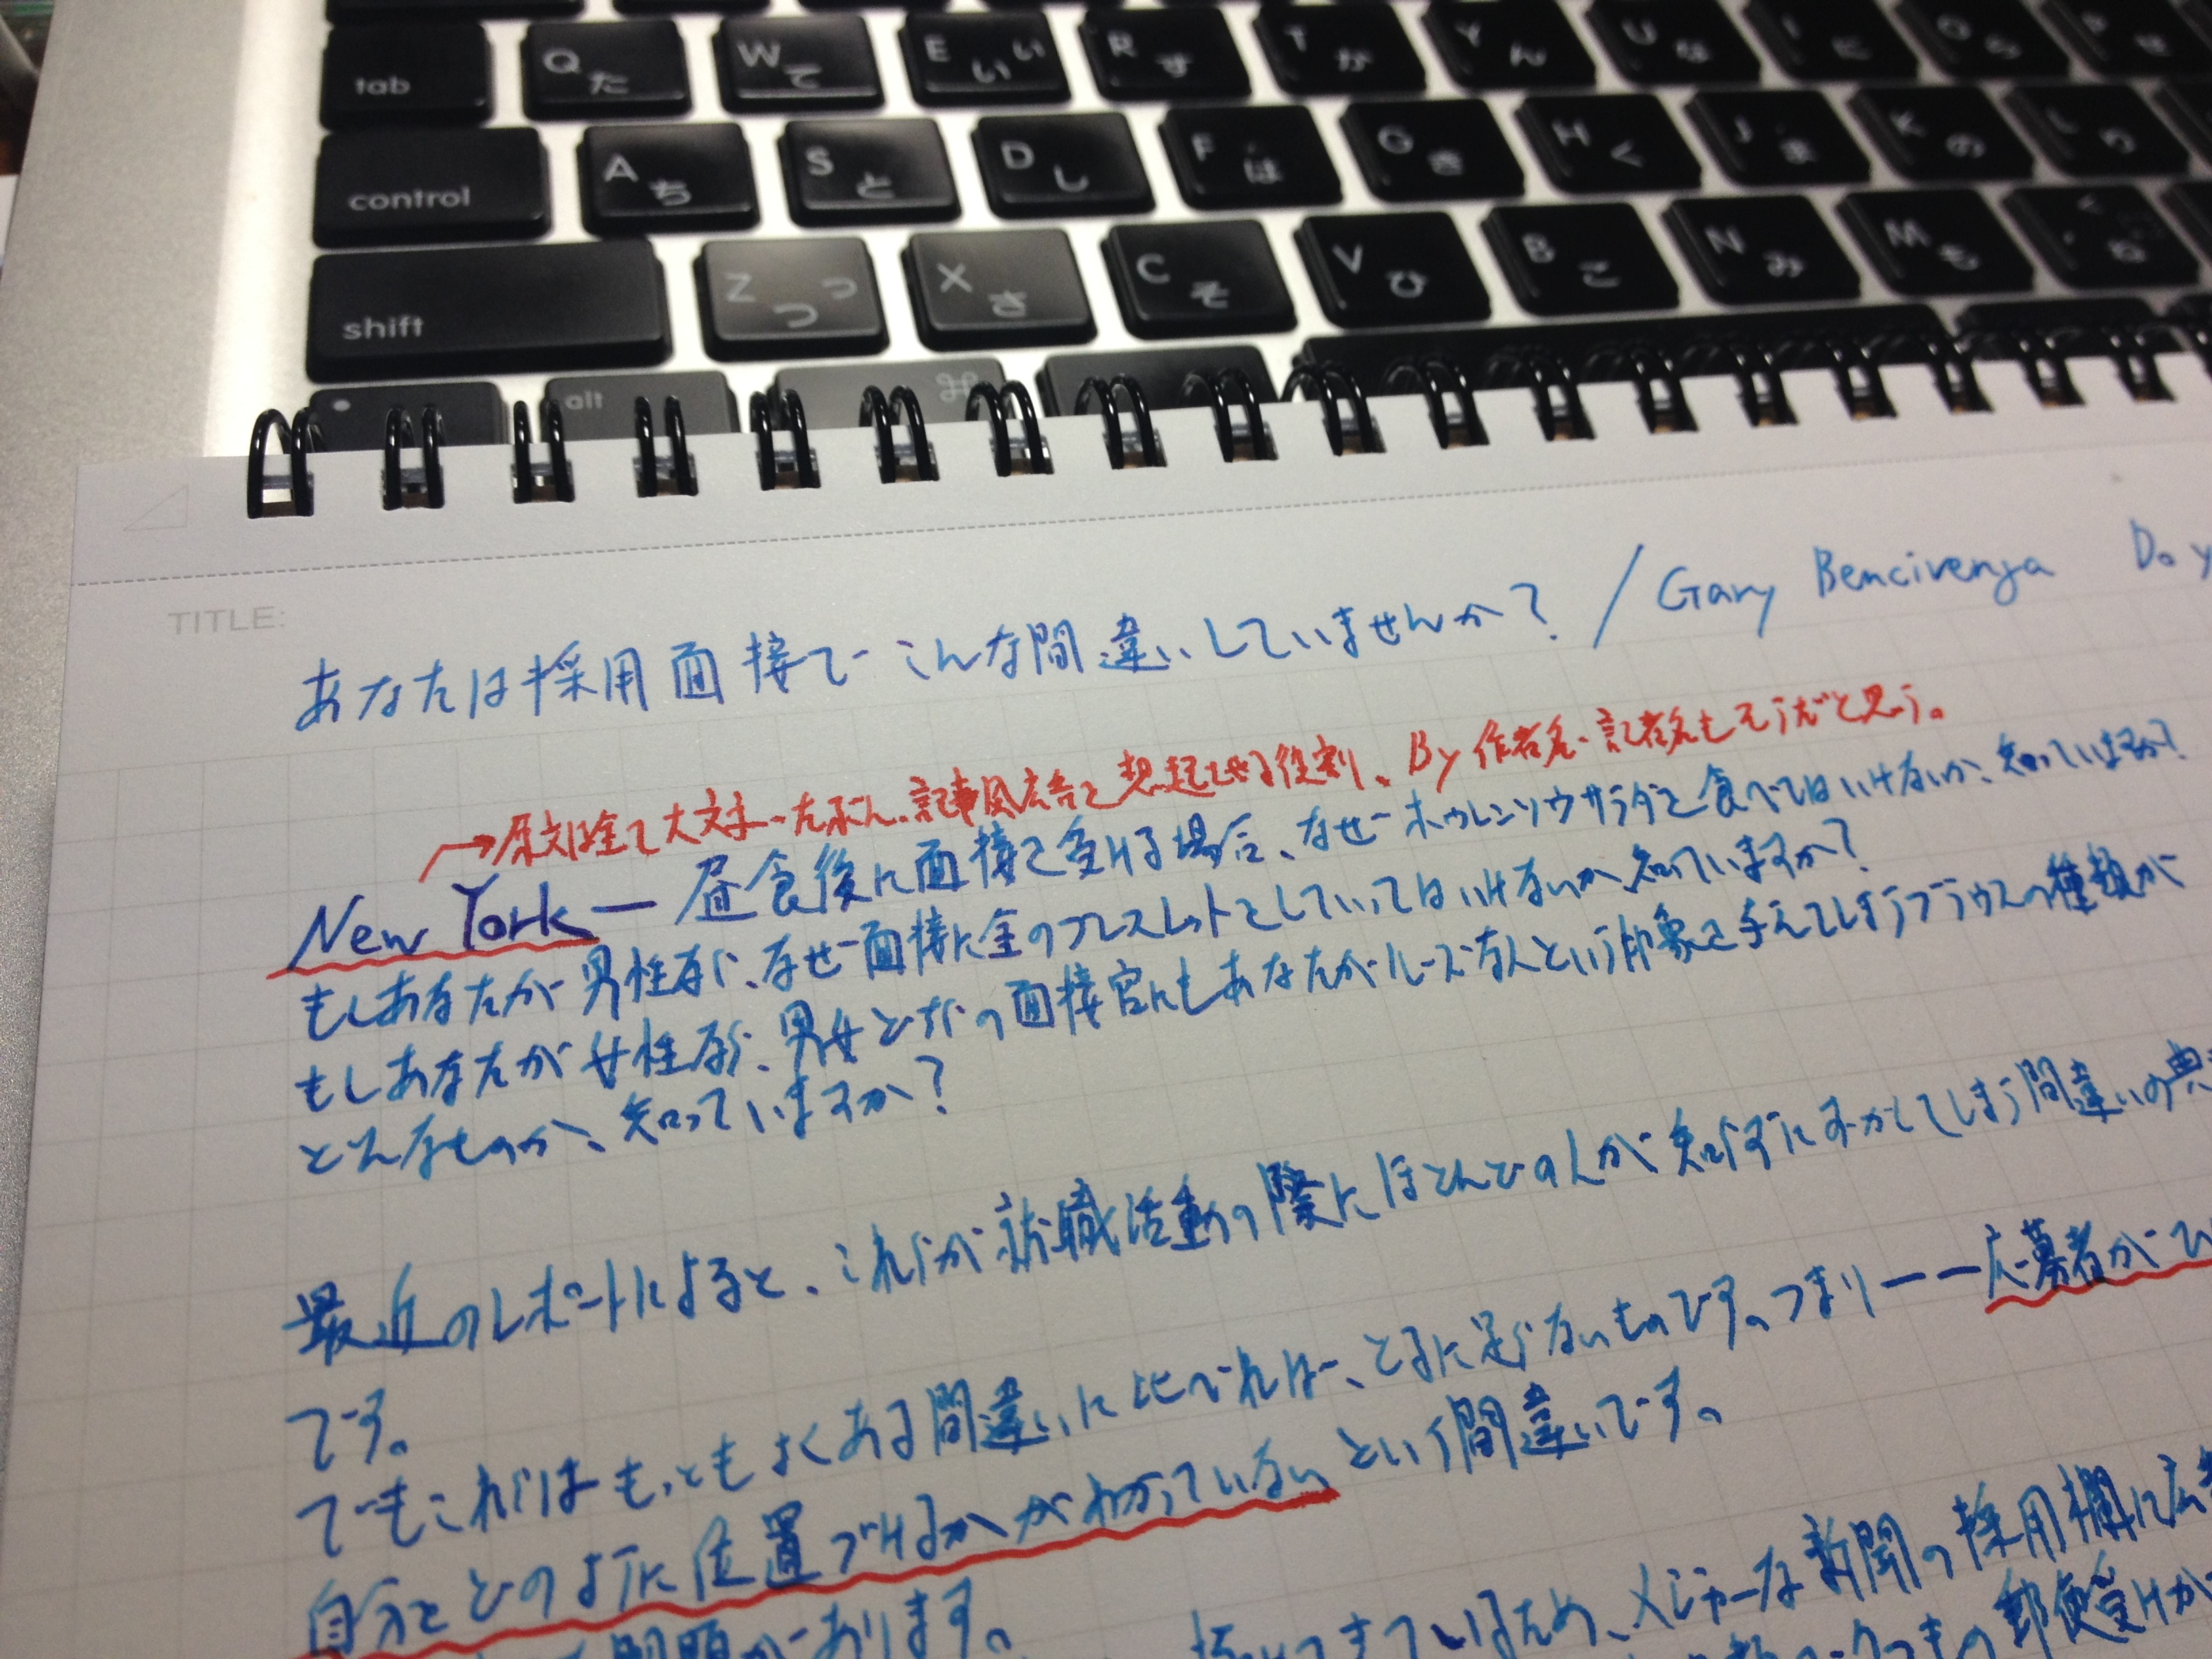 tab Q た W て E い ぃ R す T か Y ん U な I に O ら P せ
control A ち S と D し F は G き H く J ま K の L り
shift Z つ っ X さ C そ V ひ B こ N み M も < ね
alt ⌘
TITLE:
あなたは採用面接でこんな間違いしていませんか? / Gary Bencivenga Do y
→原文は全て大文字。たぶん、記事風広告を想起させる役割、By 作者名・記者名もそうだと思う。
New York — 昼食後に面接を受ける場合、なぜホウレンソウサラダを食べてはいけないか、知っていますか?
もしあなたが男性なら、なぜ面接に金のブレスレットをしていってはいけないか、知っていますか?
もしあなたが女性なら、男女どちらの面接官にもあなたがルーズな人という印象を与えてしまうブラウスの種類が
どんなものか、知っていますか?
最近のレポートによると、これらが就職活動の際にほとんどの人が知らずにおかしてしまう間違いの典
です。
でもこれらはもっともよくある間違いに比べれば、とるに足らないものです。つまり——応募者がひ
自分をどのように位置づけるかがわかっていないという間違いです。
問題があります。
きているため、メジャーな新聞の採用欄に広告
の郵便受けが